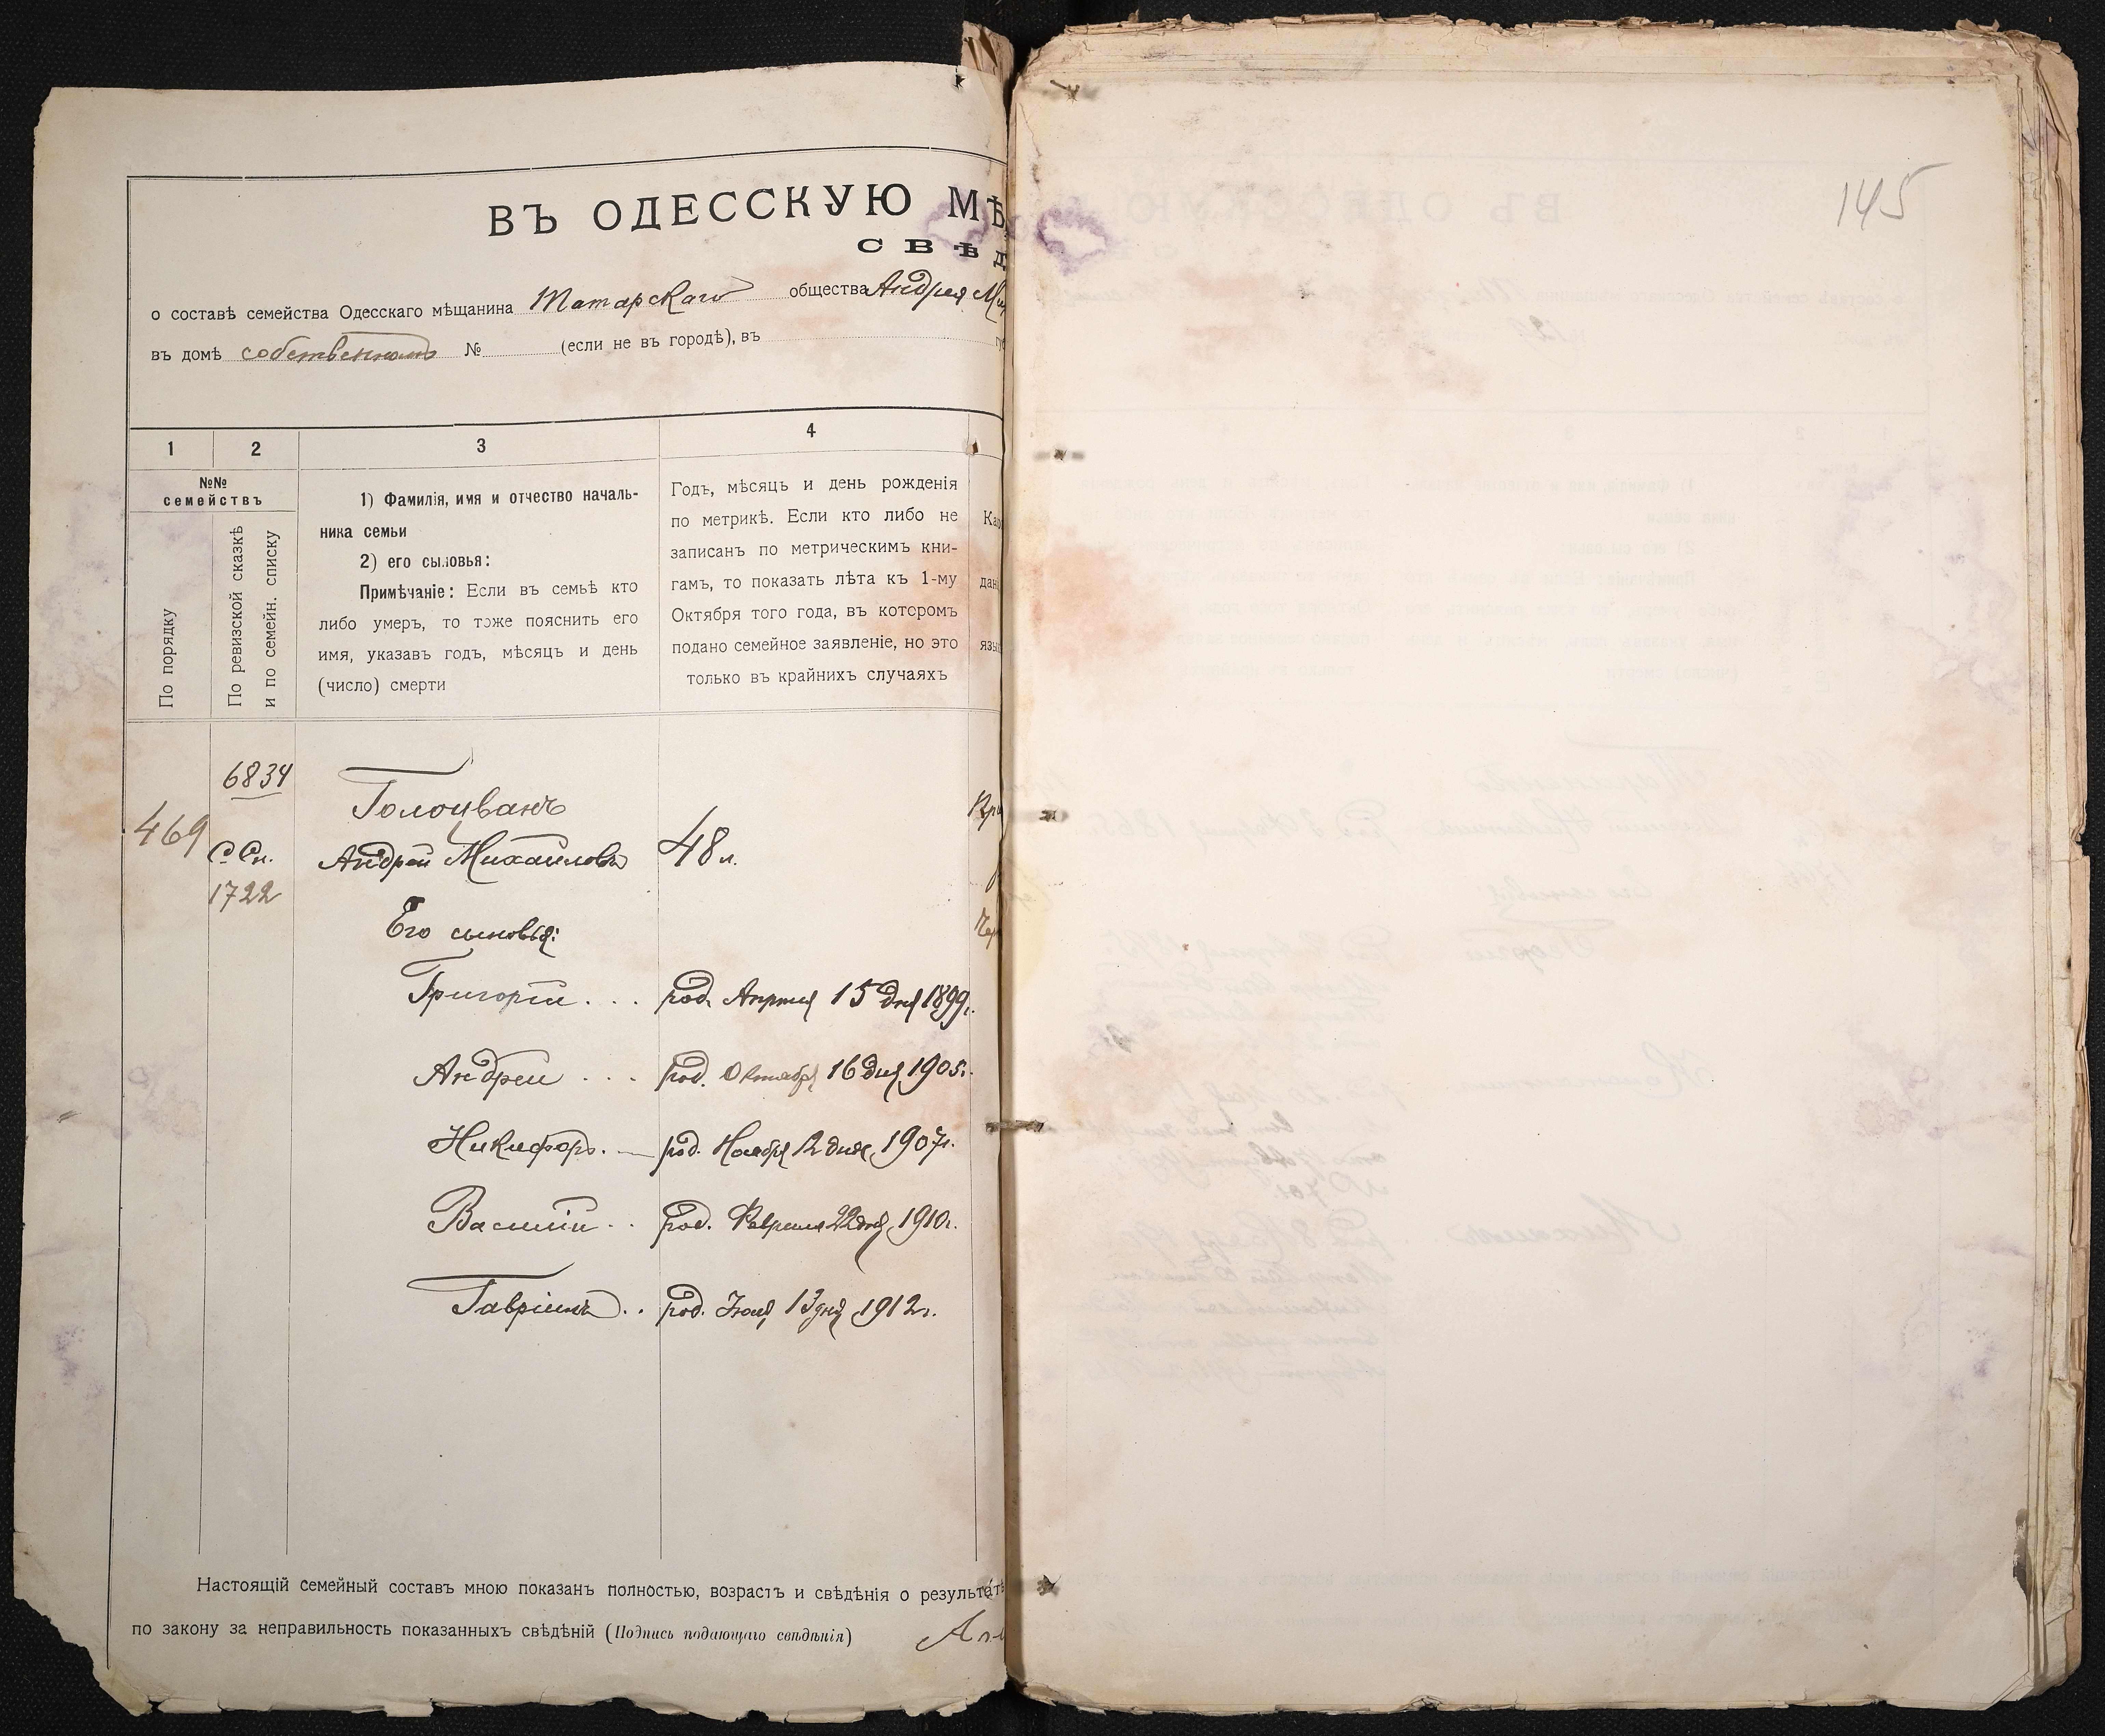 145
ВЪ ОДЕССКУЮ МѢ
СВѢД
о составѣ семейства Одесскаго мѣщанина Татарскаго общества Андрея Ми
въ домѣ собственномъ № (если не въ городѣ), въ
1 2 3 4
№№
семействъ
По порядку
По ревизской сказкѣ
и по семейн. списку
1) Фамилія, имя и отчество началь-
ника семьи
2) его сыновья:
Примѣчаніе: Если въ семьѣ кто
либо умеръ, то тоже пояснить его
имя, указавъ годъ, мѣсяцъ и день
(число) смерти
Годъ, мѣсяцъ и день рожденія
по метрикѣ. Если кто либо не
записанъ по метрическимъ кни-
гамъ, то показать лѣта къ 1-му
Октября того года, въ которомъ
подано семейное заявленіе, но это
только въ крайнихъ случаяхъ
Как
дан
язы
6834
Голоцванъ
469 С Сп. Андрей Михаиловъ 48 л.
1722
Его сыновья:
Григорій . . . род. Апреля 15 дня 1899 г.
Андрей . . . род. Октября 16 дня 1905 г.
Никифоръ. — род. Ноября 12 дня 1907 г.
Василій . . род. Февраля 22 дня 1910 г.
Гавріилъ . . род. Іюля 13 дня 1912 г.
Настоящій семейный составъ мною показанъ полностью, возрастъ и свѣдѣнія о результатѣ
по закону за неправильность показанныхъ свѣдѣній (Подпись подающаго свѣдѣнія)